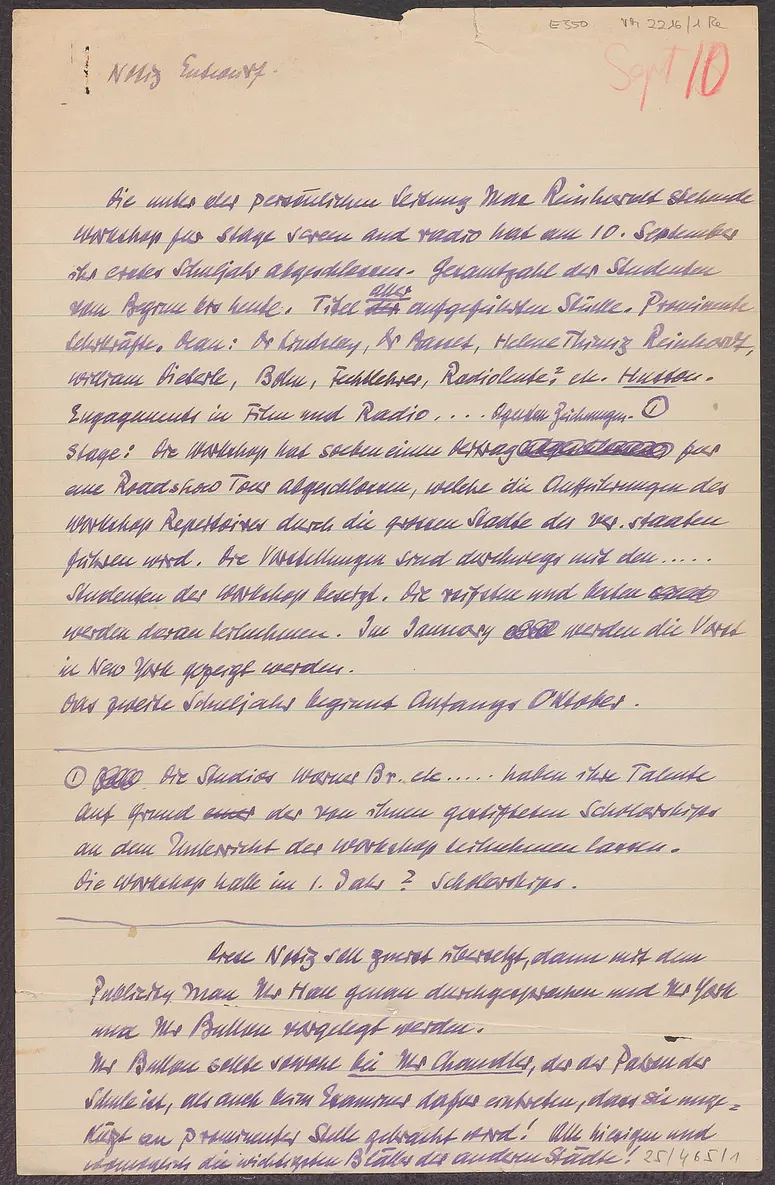 E350 VM 2216/1 Re
Sept 10
Notiz Entwurf.
Die unter der persönlichen Leitung Max Reinhardt stehende
Workshop for stage screen and radio hat am 10. September
ihr erstes Schuljahr abgeschlossen. Gesamtzahl der Studenten
von Beginn bis heute. Titel der aller aufgeführten Stücke. Prominente
Lehrkräfte. Dean: Dr Lindsley, Dr Basset, Helene Thimig Reinhardt,
William Dieterle, Bohn, Fechtlehrer, Radioleute? etc. Huston.
Engagements in Film und Radio .... Zeichnungen. ①
Stage: Die Workshop hat soeben einen Vertrag für
eine Roadshow Tour abgeschlossen, welche die Aufführungen des
Workshop Repertoires durch die grossen Städte der Ver. Staaten
führen wird. Die Vorstellungen sind durchwegs mit den .....
Studenten der Workshop besetzt. Die reifsten und besten
werden daran teilnehmen. Im January werden die Vorst
in New York gezeigt werden.
Das zweite Schuljahr beginnt Anfangs Oktober.
① Die Studios Warner Br. etc ..... haben ihre Talente
auf Grund einer der von ihnen gestifteten Scholarships
an dem Unterricht der Workshop teilnehmen lassen.
Die Workshop hatte im 1. Jahr ? Scholarships.
Diese Notiz soll zuerst übersetzt, dann mit dem
Publicity Man Mr Hall genau durchgesprochen und Mr York
und Mr Button vorgelegt werden.
Mr Button sollte sowohl bei Mr Chandler, der der Patron der
Schule ist, als auch beim Examiner dafür eintreten, dass sie unge=
kürzt an prominenter Stelle gebracht wird! Alle hiesigen und
womöglich die wichtigsten Blätter der anderen Städte!
25/465/1